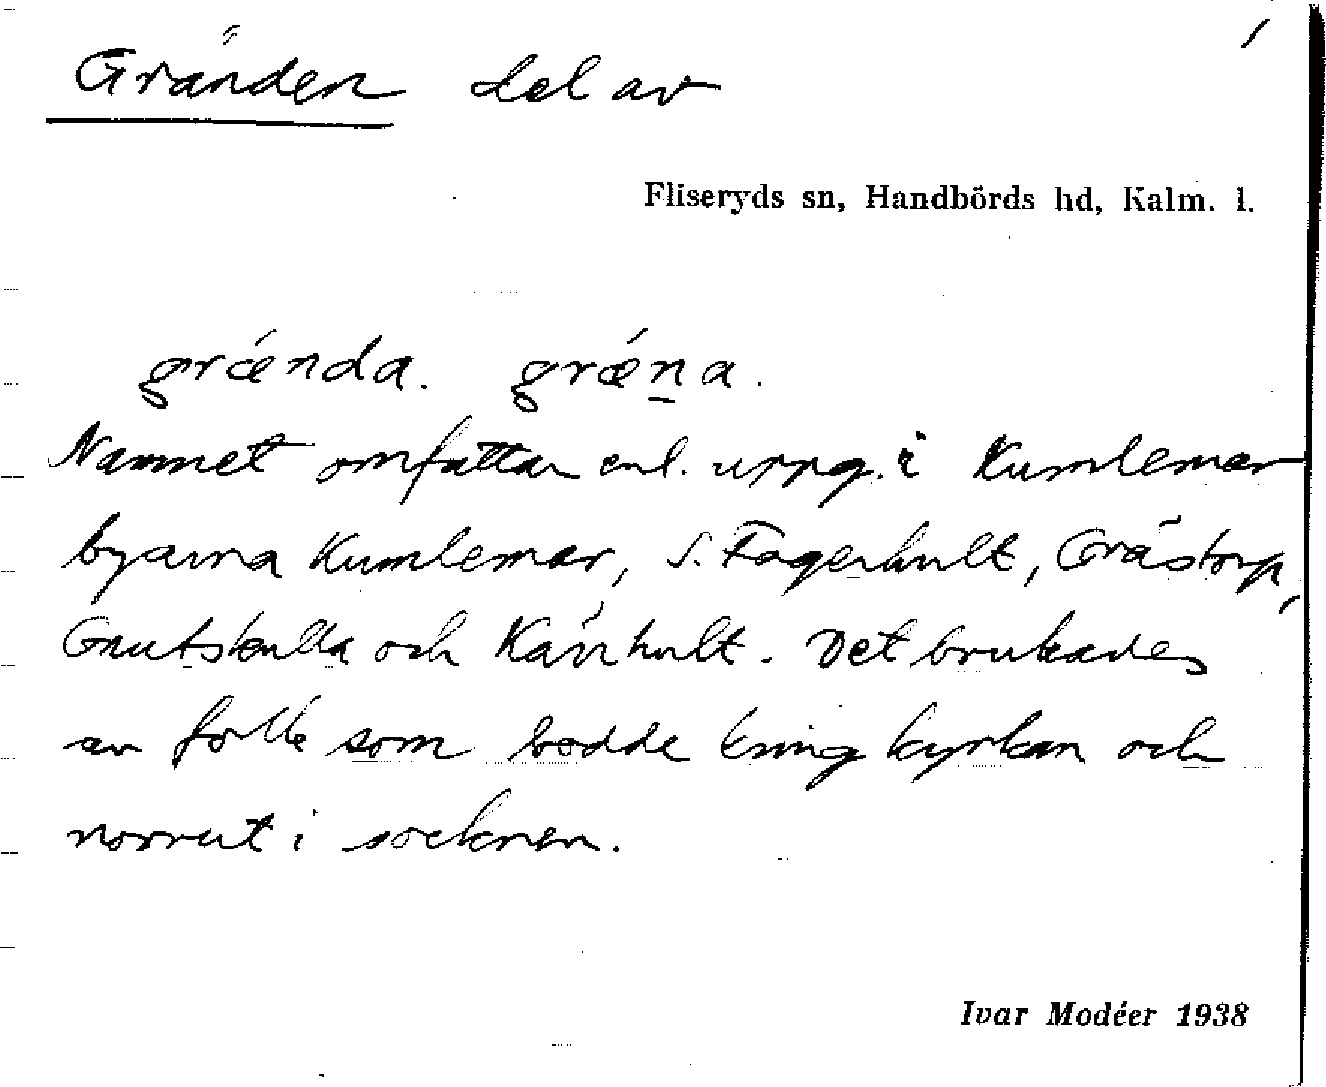 Gränden del av
Fliseryds sn, Handbörds hd, Kalm. l.
grǽnda. grǽn̲a.
Namnet omfattar enl. uppg. i Kumlemar
byarna Kumlemar, S. Fagerhult, Gråstorp,
Gnutskulla och Kärrhult. Det brukades
av folk som bodde kring kyrkan och
norrut i socknen.
Ivar Modéer 1938